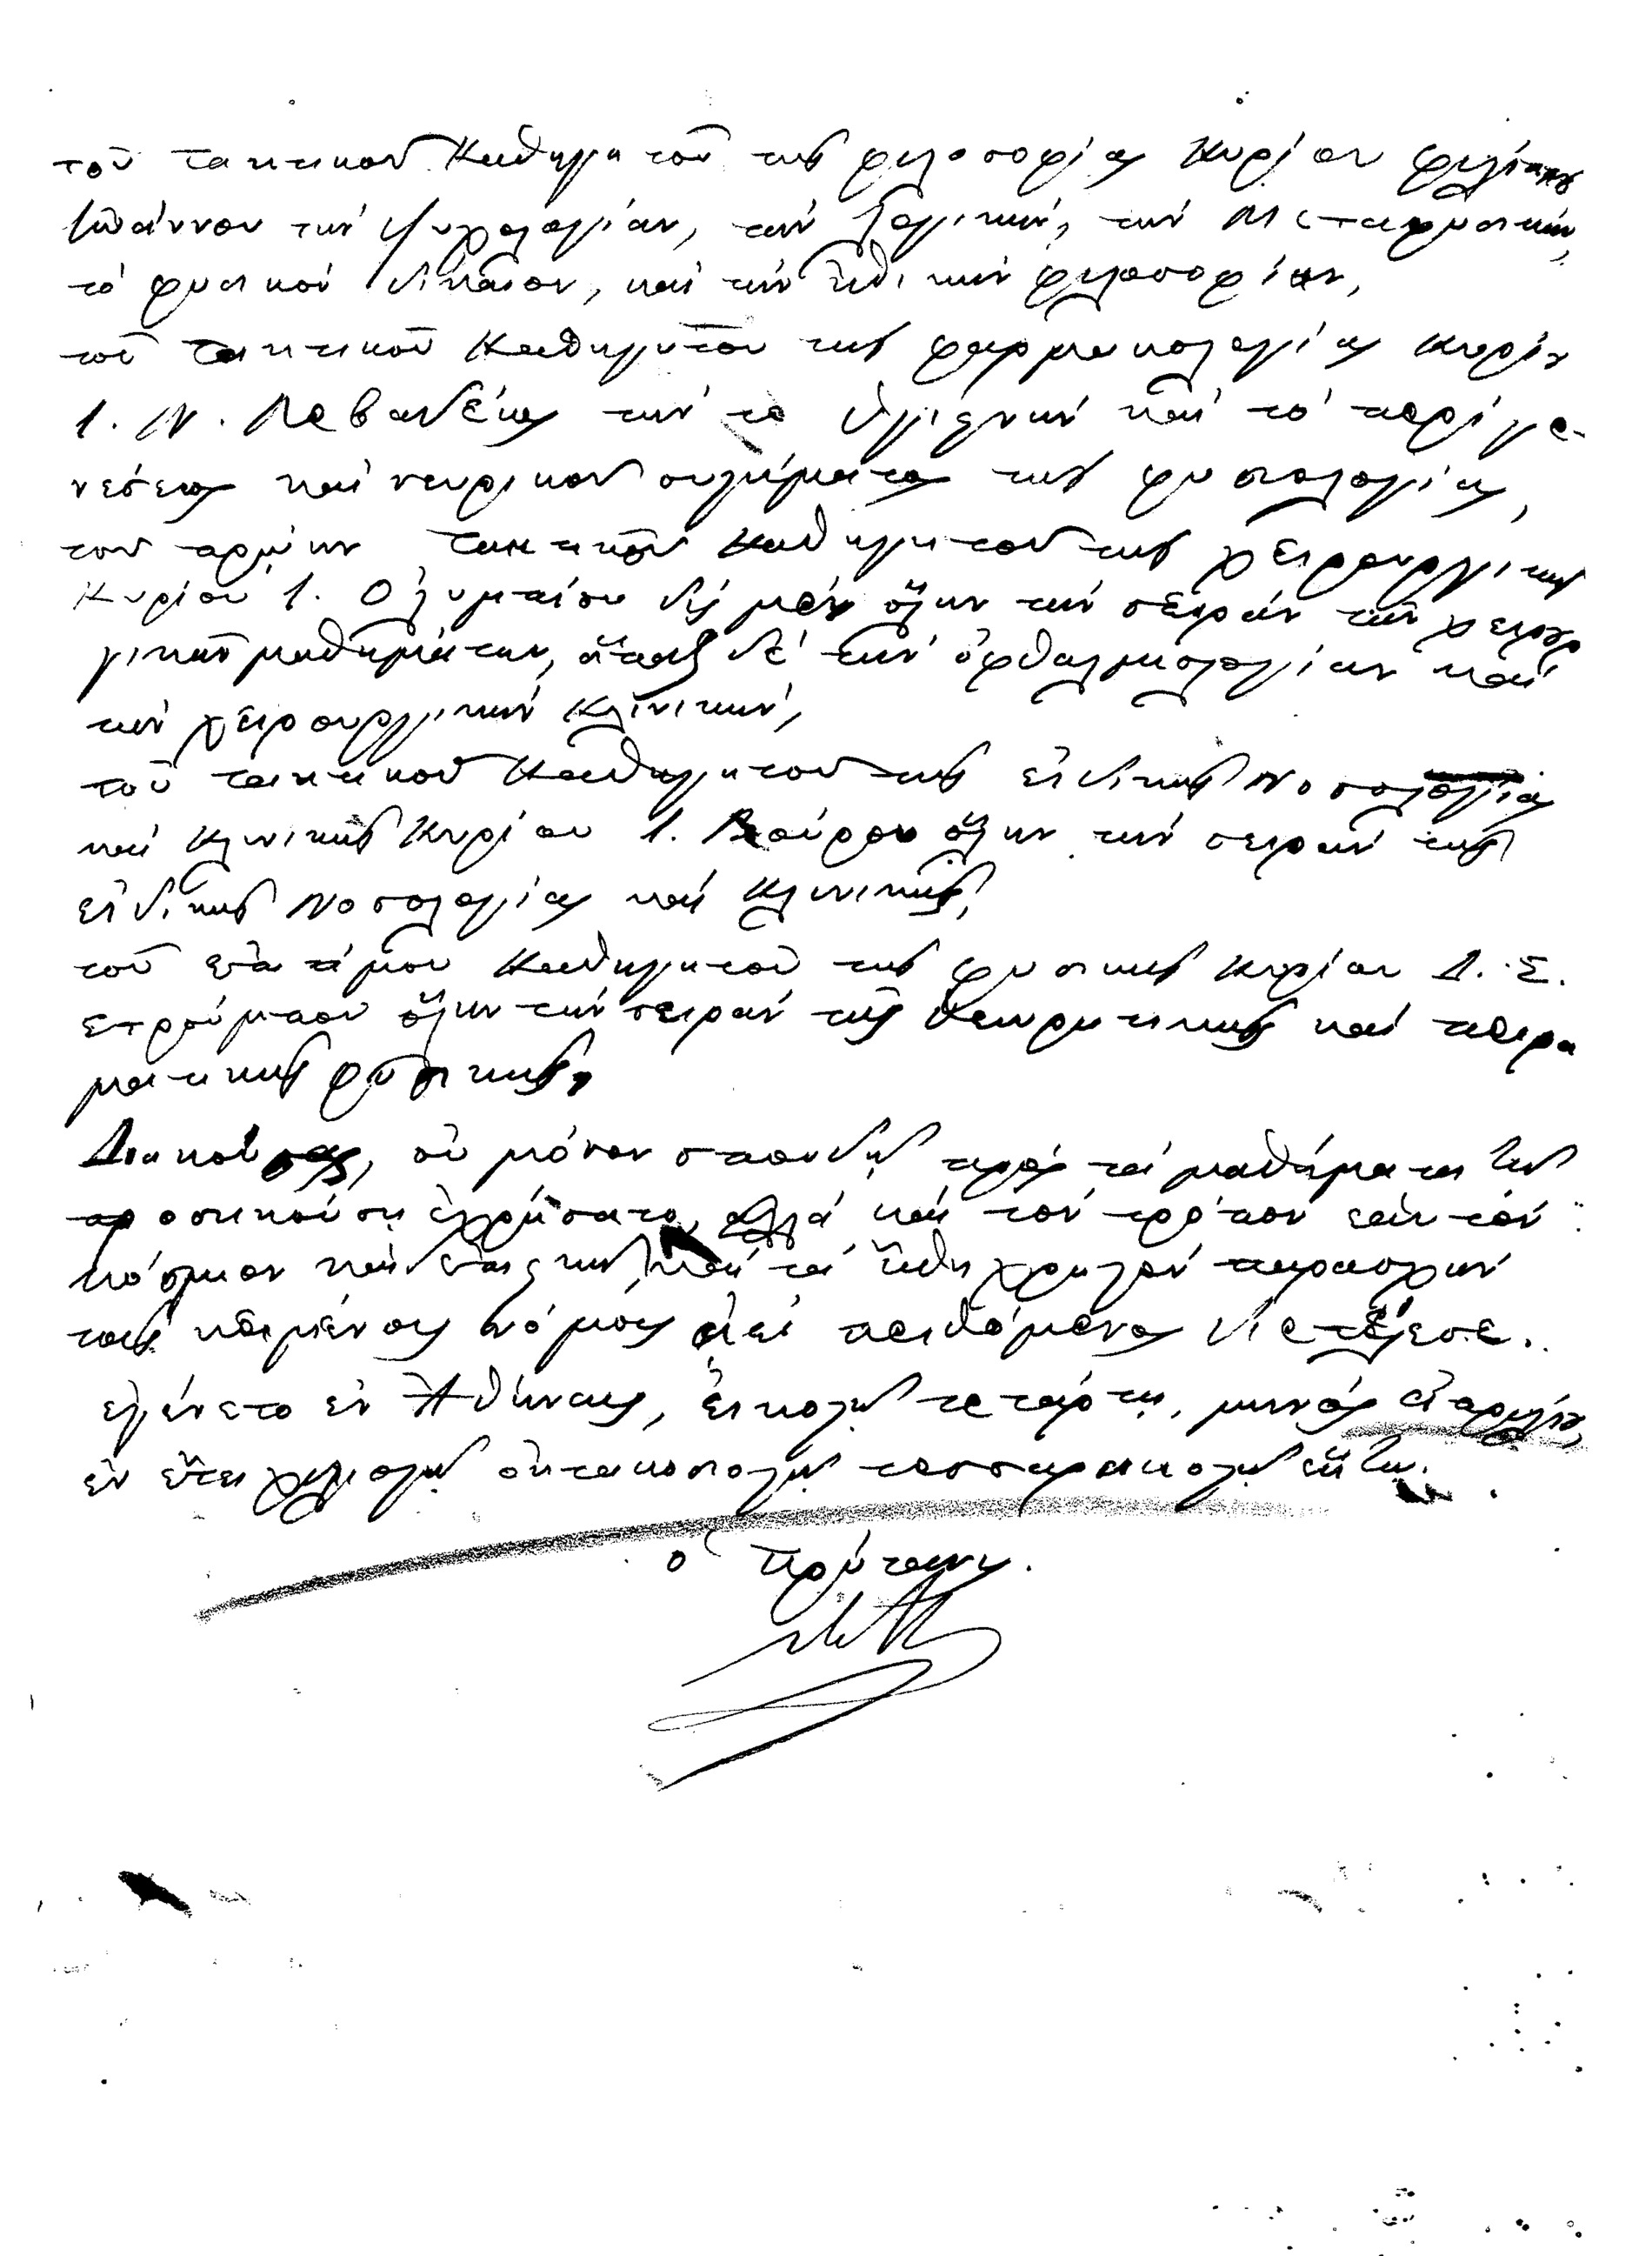 τοῦ τακτικοῦ Καθηγητοῦ τῆς φιλοσοφίας Κυρίου φιλίππου
Ἰωάννου τὴν ψυχολογίαν, τὴν λογικὴν, τὴν Μεταφυσικὴν,
τὸ φυσικὸν δίκαιον, καὶ τὴν ἠθικὴν φιλοσοφίαν,
τοῦ τακτικοῦ Καθηγητοῦ τῆς φαρμακολογίας Κυρίου
Ι. Ν. Λεβαδέως τήν τε ὑγιεινὴν καὶ τὸ περὶ γε-
νέσεως καὶ νευρικοῦ συστήματος τῆς φυσιολογίας,
τοῦ πρώην τακτικοῦ Καθηγητοῦ τῆς χειρουργικῆς
Κυρίου Ι. Ολυμπίου δὶς μὲν ὅλην τὴν σειρὰν τῶν χειρουρ
γικῶν μαθημάτων, ἅπαξ δὲ τὴν ὀφθαλμολογίαν καὶ
τὴν χειρουργικὴν Κλινικὴν,
τοῦ τακτικοῦ Καθηγητοῦ τῆς εἰδικῆς Νοσολογίας
καὶ Κλινικῆς Κυρίου Ι. Βούρου ὅλην τὴν σειρὰν τῆς
εἰδικῆς Νοσολογίας καὶ Κλινικῆς,
τοῦ ἐπιτίμου Καθηγητοῦ τῆς φυσικῆς Κυρίου Δ. Σ.
Στρούμπου ὅλην τὴν σειρὰν τῆς θεωρητικῆς καὶ πειρα
ματικῆς φυσικῆς,
Διακούσας, οὐ μόνον σπουδῇ πρὸς τὰ μαθήματα τῇ
προσηκούσῃ ἐχρήσατο, ἀλλὰ καὶ τὸν τρόπον ἑαυτὸν
κόσμιον καὶ ἐπιεικῆ, καὶ τὰ ἤθη χρηστὸν παρασχὼν
τοῖς κειμένοις νόμοις ἀεὶ πειθόμενος διετέλεσε.
ἐγένετο ἐν Ἀθήναις, εἰκοστῇ τετάρτῃ, μηνὸς ἀπριλίου,
ἐν ἔτει χιλιοστῷ ὀκτακοσιοστῷ τεσσαρακοστῷ ἕκτῳ.
ὁ Πρύτανις.